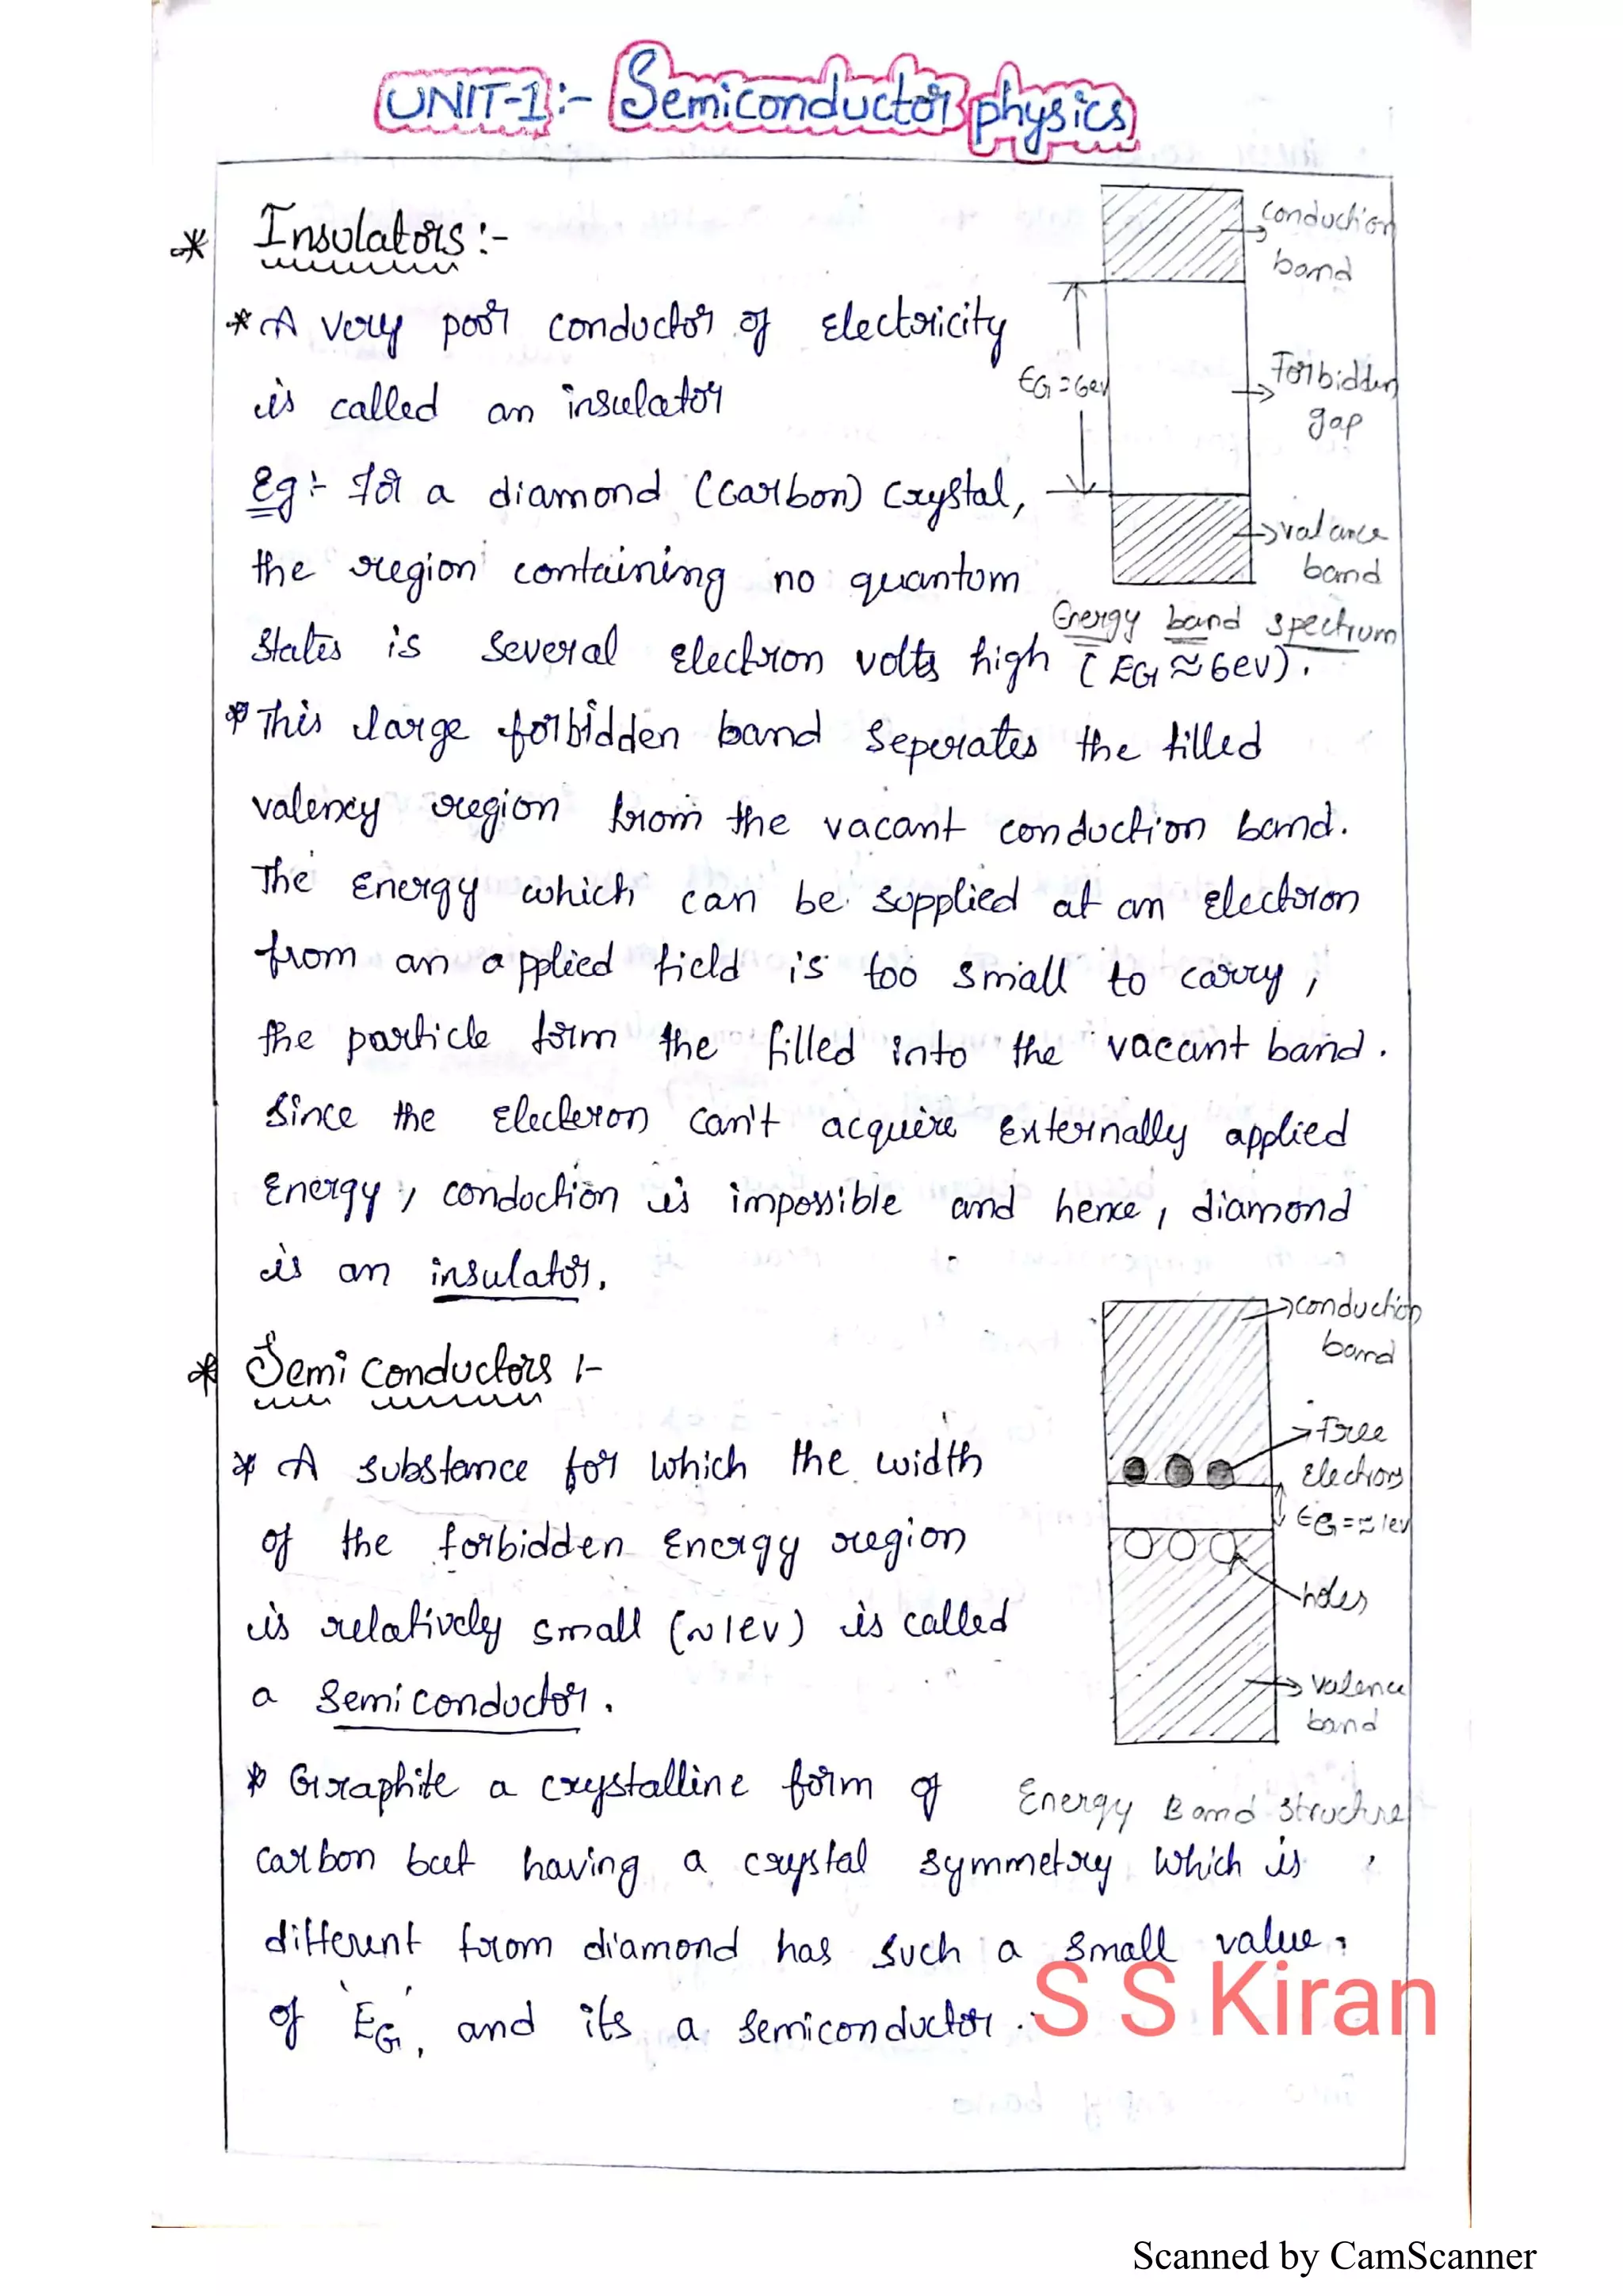 UNIT-1:- Semiconductor physics
* Insulators:-
* A very poor conductor of Electricity
is called an insulator
Eg:- For a diamond (carbon) crystal,
the region containing no quantum
states is several electron volts high (EG ≈ 6ev).
conduction
band
EG = 6ev
Forbidden
gap
valance
band
Energy band spectrum
* This large forbidden band seperates the filled
valency region from the vacant conduction band.
The Energy which can be supplied at an electron
from an applied field is too small to carry,
the particle form the filled into the vacant band.
Since the Electeron can't acquire externally applied
Energy, conduction is impossible and hence, diamond
is an insulator.
* Semi conductors :-
* A substance for which the width
of the forbidden Energy region
is relatively small (~1ev) is called
a semi conductor.
conduction
band
Free
Electrons
EG = ≈ 1ev
holes
valence
band
Energy Band structure
* Graphite a crystalline form of
carbon but having a crystal symmetry which is
different from diamond has such a small value,
of 'EG', and its a semiconductor.
S S Kiran
Scanned by CamScanner